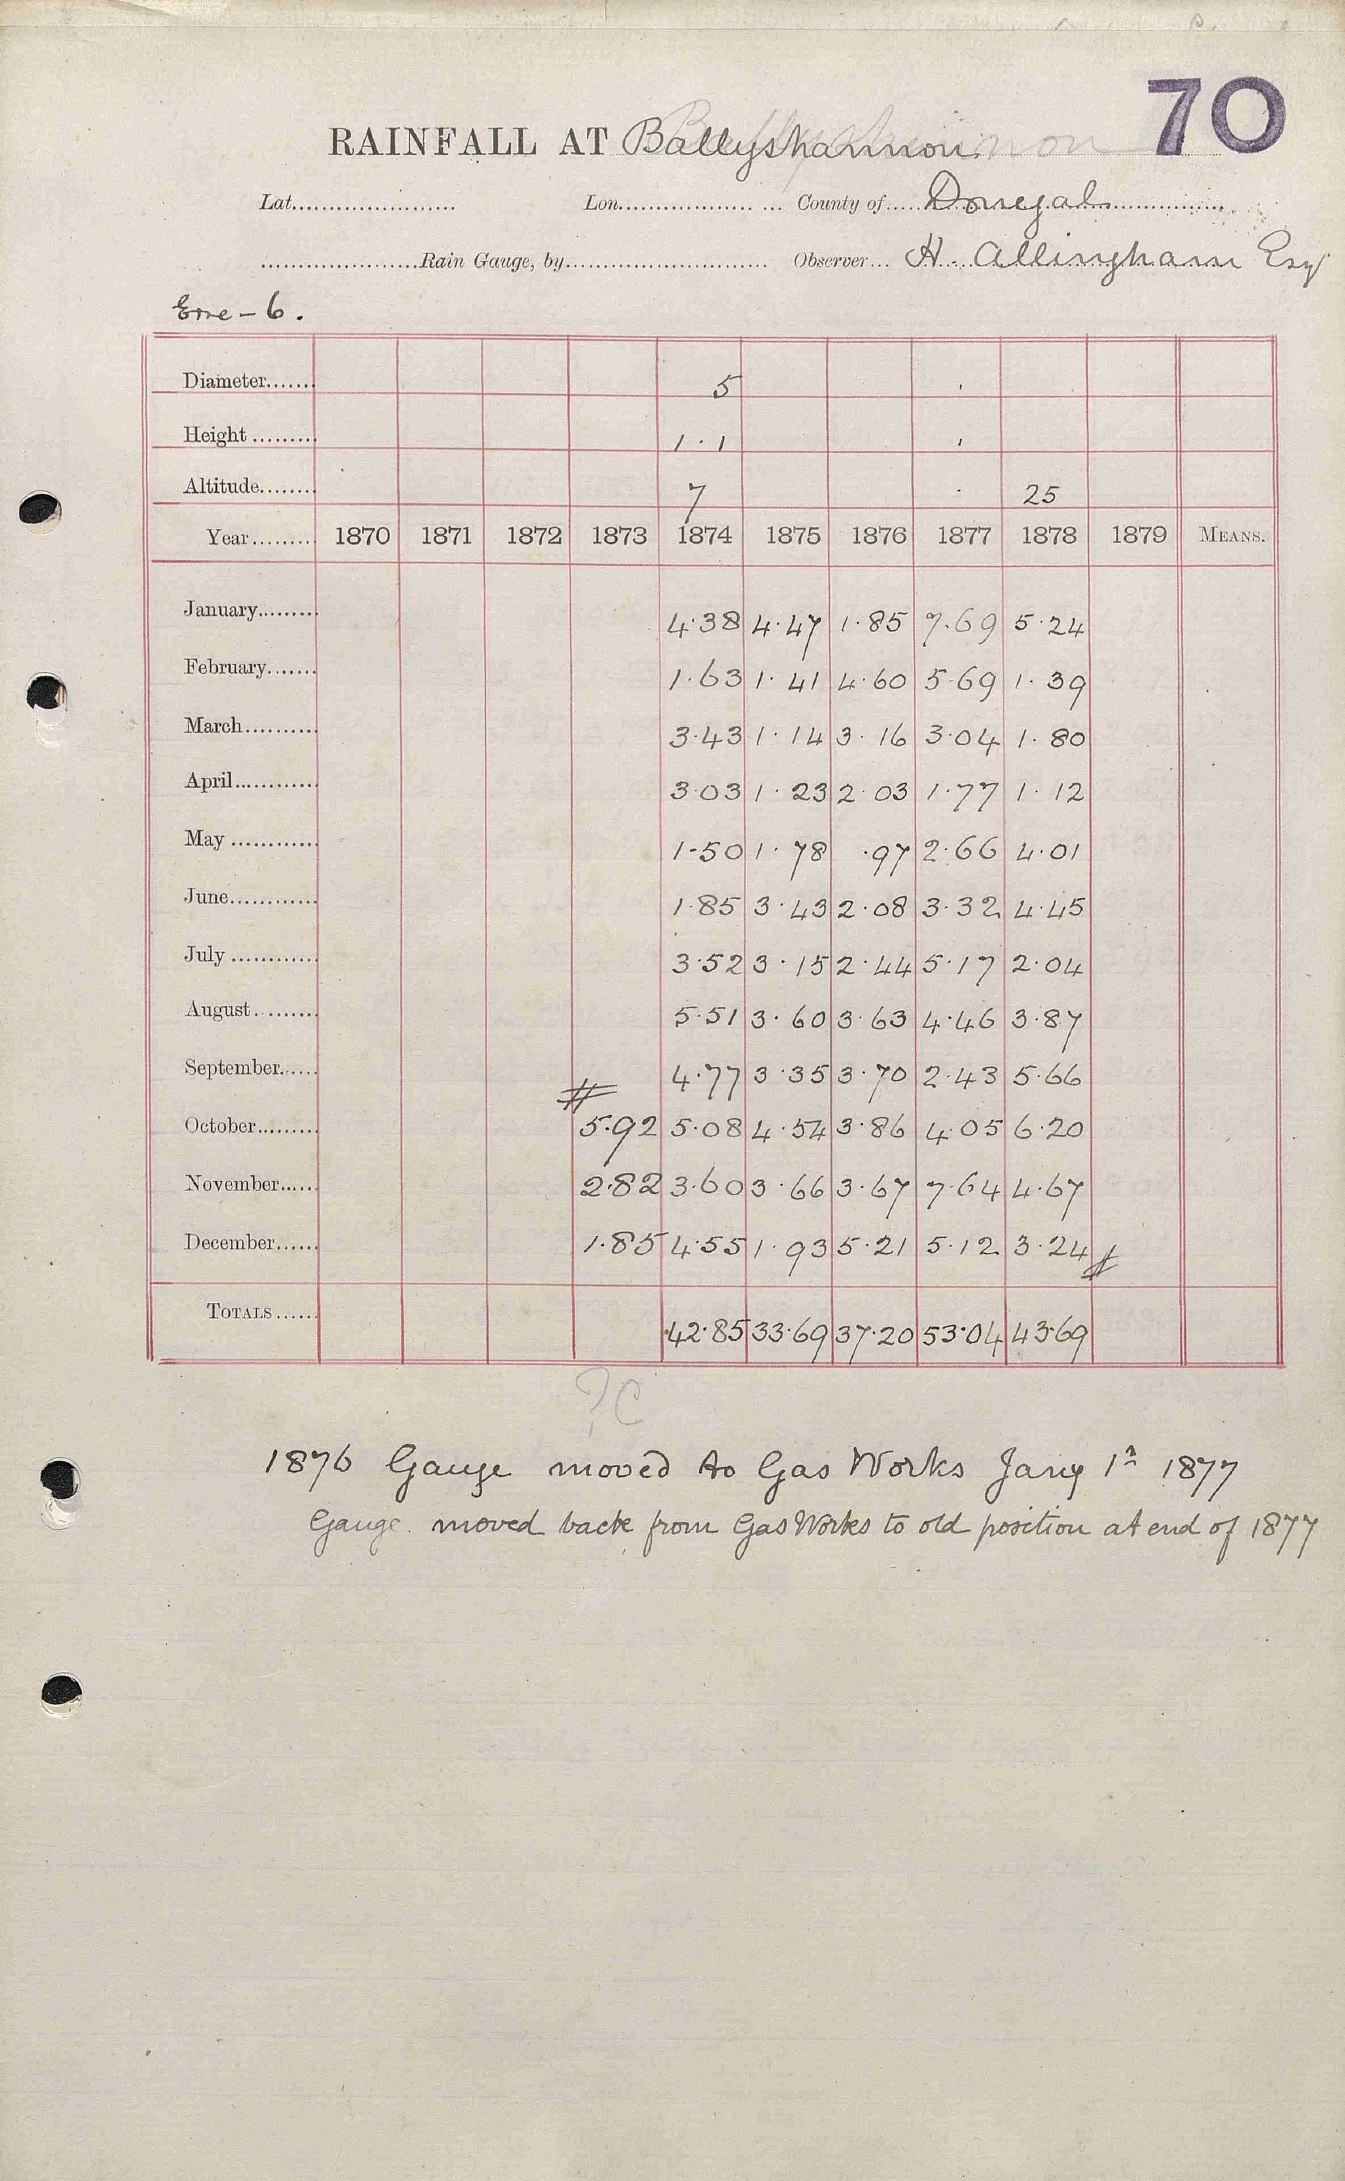 70
RAINFALL AT Ballyshannon
Lat...................... Lon..................... County of..... Donegal
.....................Rain Gauge, by........................... Observer... H. Allingham Esq
Erne - 6.
Diameter....... 5
Height ......... 1.1
Altitude........ 7 25
Year........ 1870 1871 1872 1873 1874 1875 1876 1877 1878 1879 MEANS.
January......... 4.38 4.47 1.85 7.69 5.24
February....... 1.63 1.41 4.60 5.69 1.39
March.......... 3.43 1.14 3.16 3.04 1.80
April............ 3.03 1.23 2.03 1.77 1.12
May ............ 1.50 1.78 .97 2.66 4.01
June............ 1.85 3.43 2.08 3.32 4.45
July ............ 3.52 3.15 2.44 5.17 2.04
August......... 5.51 3.60 3.63 4.46 3.87
September...... 4.77 3.35 3.70 2.43 5.66
October......... 5.92 5.08 4.54 3.86 4.05 6.20
November...... 2.82 3.60 3.66 3.67 7.64 4.67
December...... 1.85 4.55 1.93 5.21 5.12 3.24
TOTALS...... 42.85 33.69 37.20 53.04 43.69
?C
1876 Gauge moved to Gas Works Jany 1st 1877
Gauge moved back from Gas Works to old position at end of 1877